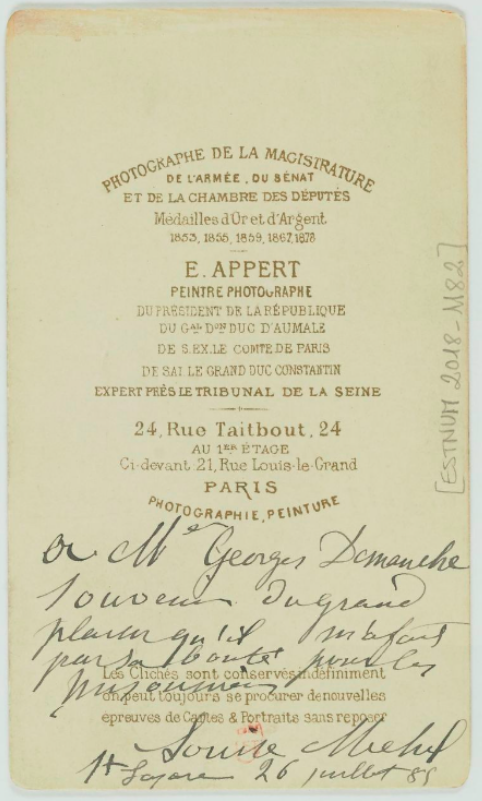 PHOTOGRAPHE DE LA MAGISTRATURE
DE L'ARMÉE, DU SÉNAT
ET DE LA CHAMBRE DES DÉPUTÉS
Médailles d'Or et d'Argent
1853, 1855, 1859, 1867, 1878
E. APPERT
PEINTRE PHOTOGRAPHE
DU PRÉSIDENT DE LA RÉPUBLIQUE
DU GAL DON DUC D'AUMALE
DE S.EX. LE COMTE DE PARIS
DE S.A.I. LE GRAND DUC CONSTANTIN
EXPERT PRÈS LE TRIBUNAL DE LA SEINE
24, Rue Taitbout, 24
AU 1ER ÉTAGE
Ci-devant 21, Rue Louis-le-Grand
PARIS
PHOTOGRAPHIE, PEINTURE
[ESTNUM 2018-1182]
a Me Georges Demanche
souvenir du grand
plaisir qu'il m'a fait
par sa bonté pour les
prisonniers
Les Clichés sont conservés indéfiniment
on peut toujours se procurer de nouvelles
épreuves de Cartes & Portraits sans reposer
Louise Michel
St Lazare 26 juillet 85